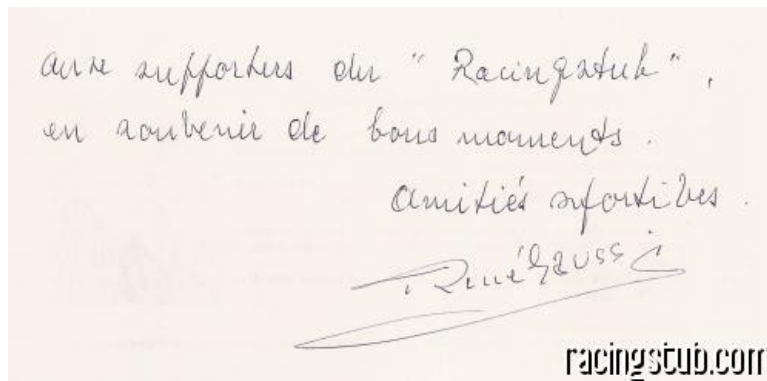 aux supporters du "Racingstub",
en souvenir de bons moments.
Amitiés sportives.
René Gaussi
racingstub.com